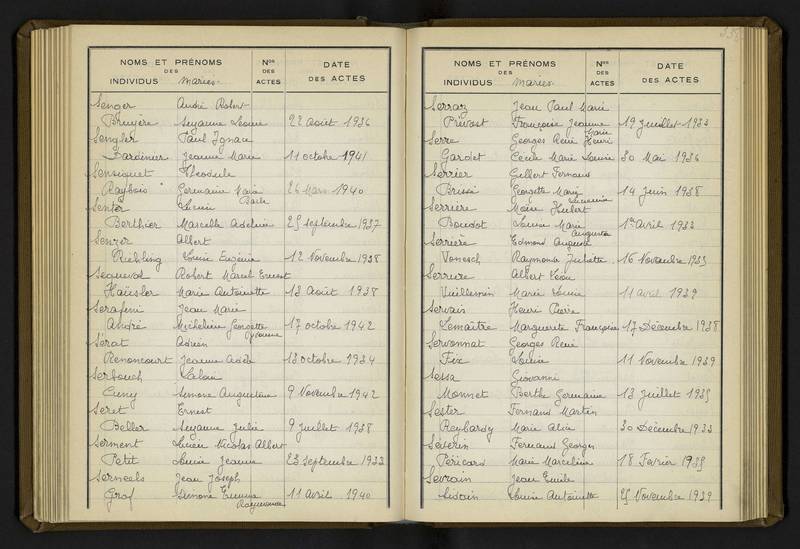 NOMS ET PRÉNOMS DES INDIVIDUS Mariés. Nos DES ACTES DATE DES ACTES
Senger André Robert
Bruyère Suzanne Léonie 22 Août 1936
Sengler Paul Ignace
Dardinier Jeanne Marie 11 octobre 1941
Sensiquet Théodule
Raybois Germaine 26 Mars 1940
Senter Lucien
Berthier Marcelle Adeline 25 septembre 1937
Senzer Albert
Riebling Louise Eugénie 12 Novembre 1938
Sequevol Robert Marcel Ernest
Haüsler Marie Antoinette 13 Août 1938
Serafini Jean Marie
André Micheline Georgette Yvonne 17 octobre 1942
Sérat Adrien
Renoncourt Jeanne Adèle 13 octobre 1934
Serbouch
Cuny Simone Augustine 9 Novembre 1942
Seret Ernest
Beller Suzanne Julie 9 Juillet 1938
Serment Lucien Nicolas Albert
Petit Lucie Jeanne 23 septembre 1933
Serneels Jean Joseph
Graf Simone Emma Raymonde 11 Avril 1940
NOMS ET PRÉNOMS DES INDIVIDUS Mariés. Nos DES ACTES DATE DES ACTES
Serraz Jean Paul Marie
Prévost Françoise Jeanne Marie 19 Juillet 1933
Serre Georges René Henri
Gardet Cécile Marie Louise 30 Mai 1936
Serrier Gilbert Fernand
Georgette Marie 14 Juin 1938
Serrière Marie Hubert
Boudot Louise Marie Augusta 1er Avril 1933
Serrière Edmond Auguste
Vonesch Raymonde Juliette 16 Novembre 1935
Serrure Albert Léon
Vuillemin Marie Louise 11 avril 1939
Servais Henri Pierre
Lemaitre Marguerite Françoise 17 Décembre 1938
Servonnat Georges René
Fix Louise 11 Novembre 1939
Sessa Giovanni
Monnet Berthe Germaine 13 Juillet 1935
Sester Fernand Martin
Reybardy Marie Alice 30 Décembre 1933
Séverin Fernand Georges
Péricard Marie Marceline 18 Février 1935
Sevrain Jean Emile
Sidoin Louise Antoinette 25 Novembre 1939